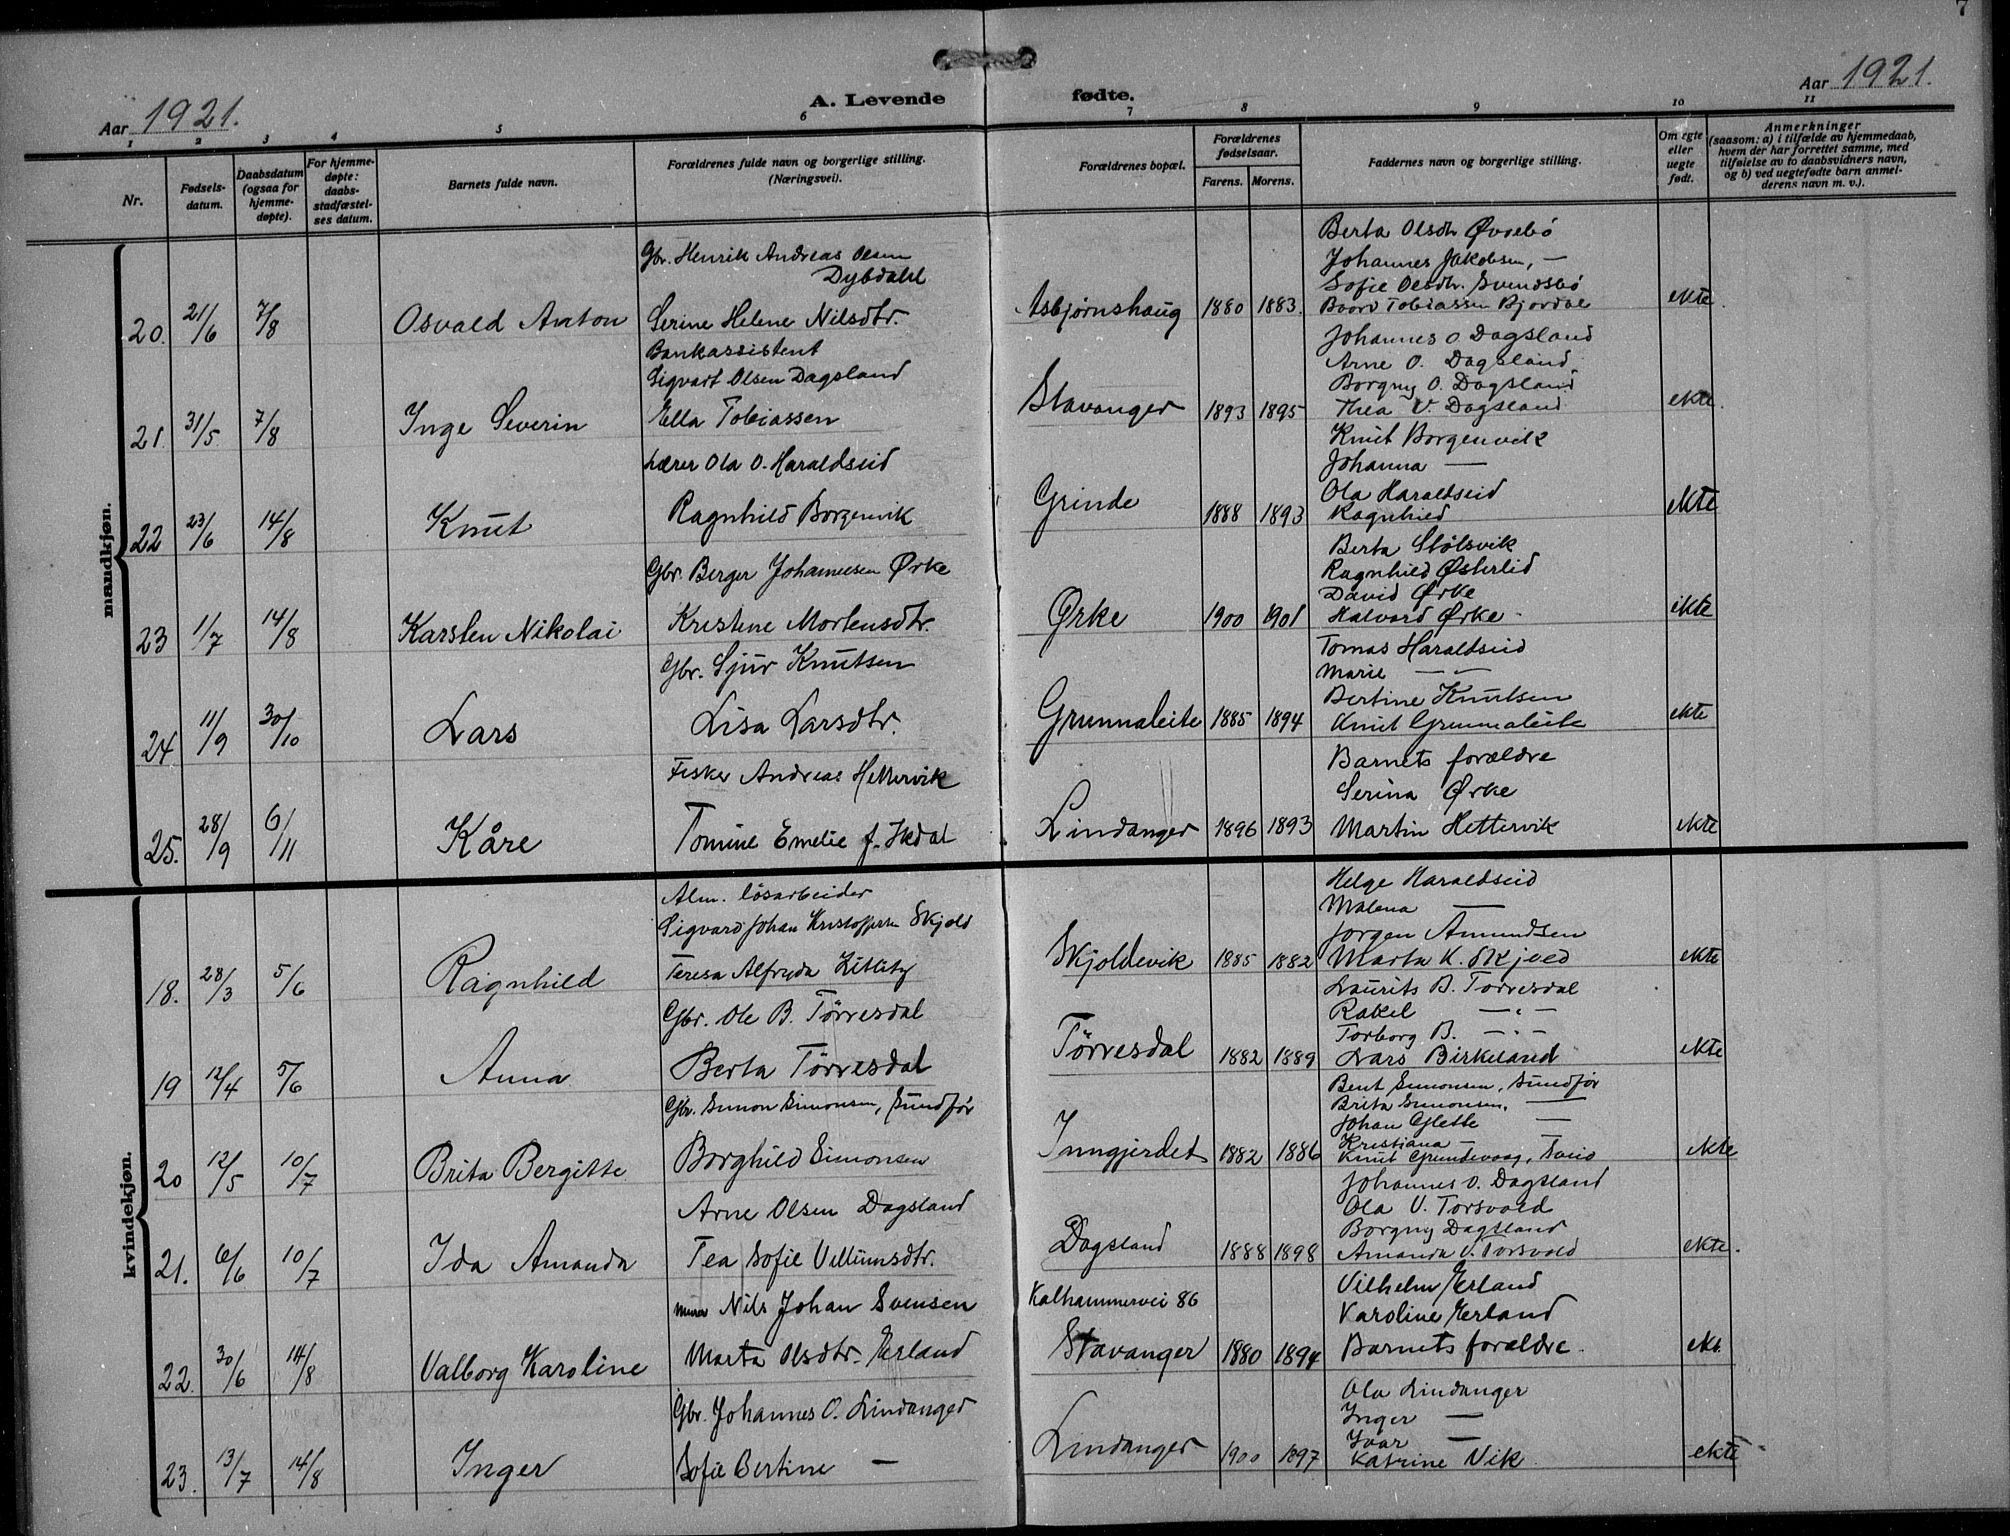 7
Aar 1921.
A. Levende fødte.
Aar 1921.
1 2 3 4 5 6 7 8 9 10 11
Nr.
Fødselsdatum.
Daabsdatum (ogsaa for hjemmedøpte).
For hjemmedøpte: daabsstadfæstelses datum.
Barnets fulde navn.
Forældrenes fulde navn og borgerlige stilling. (Næringsvei).
Forældrenes bopæl.
Forældrenes fødselsaar.
Farens. Morens.
Faddernes navn og borgerlige stilling.
Om egte eller uegte født.
Anmerkninger (saasom: a) i tilfælde av hjemmedaab, hvem der har forrettet samme, med tilføielse av to daabsvidners navn, og b) ved uegtefødte barn anmelderens navn m. v.).
mandkjøn.
Gbr. Henrik Andreas Olsen
Dybdahl
20. 21/6 7/8 Osvald Anton Serine Helene Nilsdtr. Asbjørnshaug 1880 1883. ekte
Berta Olsdtr Øvrebö
Johannes Jakobsen, —
Sofie Olsdtr. Svendsbö
Baard Tobiassen Bjordal
Bankassistent
Sigvart Olsen Dagsland
21. 31/5 7/8 Inge Severin Ella Tobiassen Stavanger 1893 1895 ekte
Johannes O Dagsland
Arne O. Dagsland
Borgny O. Dagsland
Thea V. Dagsland
Lærer Ola O. Haraldseid
22 23/6 14/8 Knut Ragnhild Borgenvik Grinde 1888 1893 ekte
Knut Borgenvik
Johanna —
Ola Haraldseid
Ragnhild
Gbr. Berger Johannesen Ørke
23 1/7 14/8 Karsten Nikolai Kristine Mortensdtr. Ørke 1900 1901 ekte
Berta Stölsvik
Ragnhild Østerlid
David Ørke
Halvard Ørke
Gbr. Sjur Knutsen
24 11/9 30/10 Lars Lisa Larsdtr. Grunnaleite 1885 1894 ekte
Tomas Haraldseid
Marie — —
Bertine Knutsen
Knut Grunnaleite
Fisker Andreas Hettervik
25. 28/9 6/11 Kåre Tomine Emelie f. Ikdal Lindanger 1896 1893 ekte
Barnets forældre
Serina Ørke
Martin Hettervik
kvindekjøn.
Alm. lösarbeider
Sigvard Johan Kristoffersen Skjold
18. 28/3 5/6 Ragnhild Teresa Alfryda Skjoldevik 1885 1882 ekte
Helge Haraldseid
Malena —
Jorgen Amundsen
Marta K. Skjold
Gbr. Ole B. Tørresdal
19 12/4 5/6 Anna Berta Tørresdal Tørresdal 1882 1889 ekte
Laurits B. Torresdal
Rakel — " —
Torborg B. — " —
Lars Birkeland
Gbr. Simon Simonsen, Sundfør
20 12/5 10/7 Brita Bergitte Borghild Simonsen Inngjerdet 1882 1886 ekte
Bent Simonsen, Sundfør
Brita Simonsen, —
Johan Glette —
Kristiana —
Knut Grundevaag,
Arne Olsen Dagsland
21. 6/6 10/7 Ida Amanda Tea Sofie Villumsdtr. Dagsland 1888 1898 ekte.
Johannes O. Dagsland
Ola V. Torsvold
Borgny Dagsland
Amanda V. Torsvold
Murer Nils Johan Svensen
Kalhammervei 86
22. 30/6 14/8 Valborg Karoline Marta Olsdtr. Erland Stavanger 1880 1894 ekt.
Vilhelm Erland
Karoline Erland
Barnets forældre.
Gbr. Johannes O. Lindanger
23. 13/7 14/8 Inger Sofie Bertine — Lindanger 1900 1897 ekte
Ola Lindanger
Inger —
Ivar —
Katrine Vik